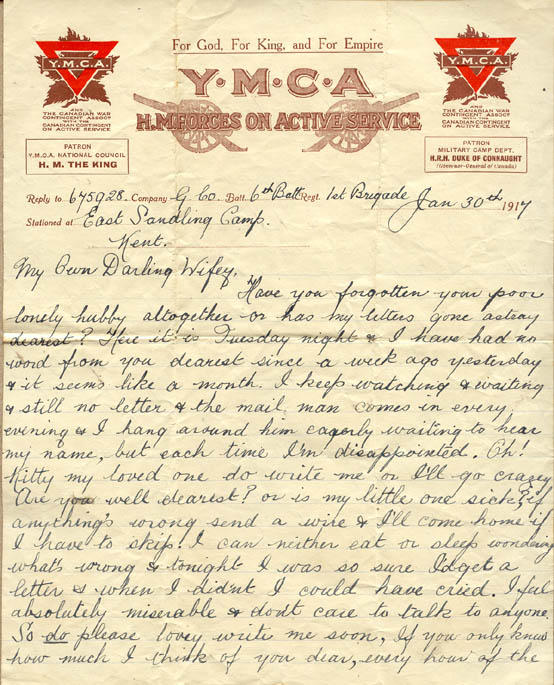 For God, For King, and For Empire
Y·M·C·A
H.M. FORCES ON ACTIVE SERVICE
Y.M.C.A.
AND
THE CANADIAN WAR
CONTINGENT ASSOCT
WITH THE
CANADIAN CONTINGENT
ON ACTIVE SERVICE
Y.M.C.A.
AND
THE CANADIAN WAR
CONTINGENT ASSOCT
WITH THE
CANADIAN CONTINGENT
ON ACTIVE SERVICE
PATRON
Y.M.C.A. NATIONAL COUNCIL
H. M. THE KING
PATRON
MILITARY CAMP DEPT.
H.R.H. DUKE OF CONNAUGHT
(Governor-General of Canada)
Reply to 675928 Company G. Co. Batt. 6th Batt Regt. 1st Brigade Jan 30th 1917
Stationed at East Sandling Camp.
Kent.
My Own Darling Wifey,
Have you forgotten your poor
lonely hubby altogether or has my letters gone astray
dearest? Here it is Tuesday night & I have had no
word from you dearest since a week ago yesterday
& it seems like a month. I keep watching & waiting
& still no letter & the mail man comes in every
evening & I hang around him eagerly waiting to hear
my name, but each time I'm disappointed. Oh!
Kitty my loved one do write me or I'll go crazey
Are you well dearest? or is my little one sick? if
anything's wrong send a wire & I'll come home if
I have to skip! I can neither eat or sleep wondering
what's wrong & tonight I was so sure I'd get a
letter & when I did'nt I could have cried. I feel
absolutely miserable & don't care to talk to anyone.
So do please lovey write me soon, If you only knew
how much I think of you dear, every hour of the